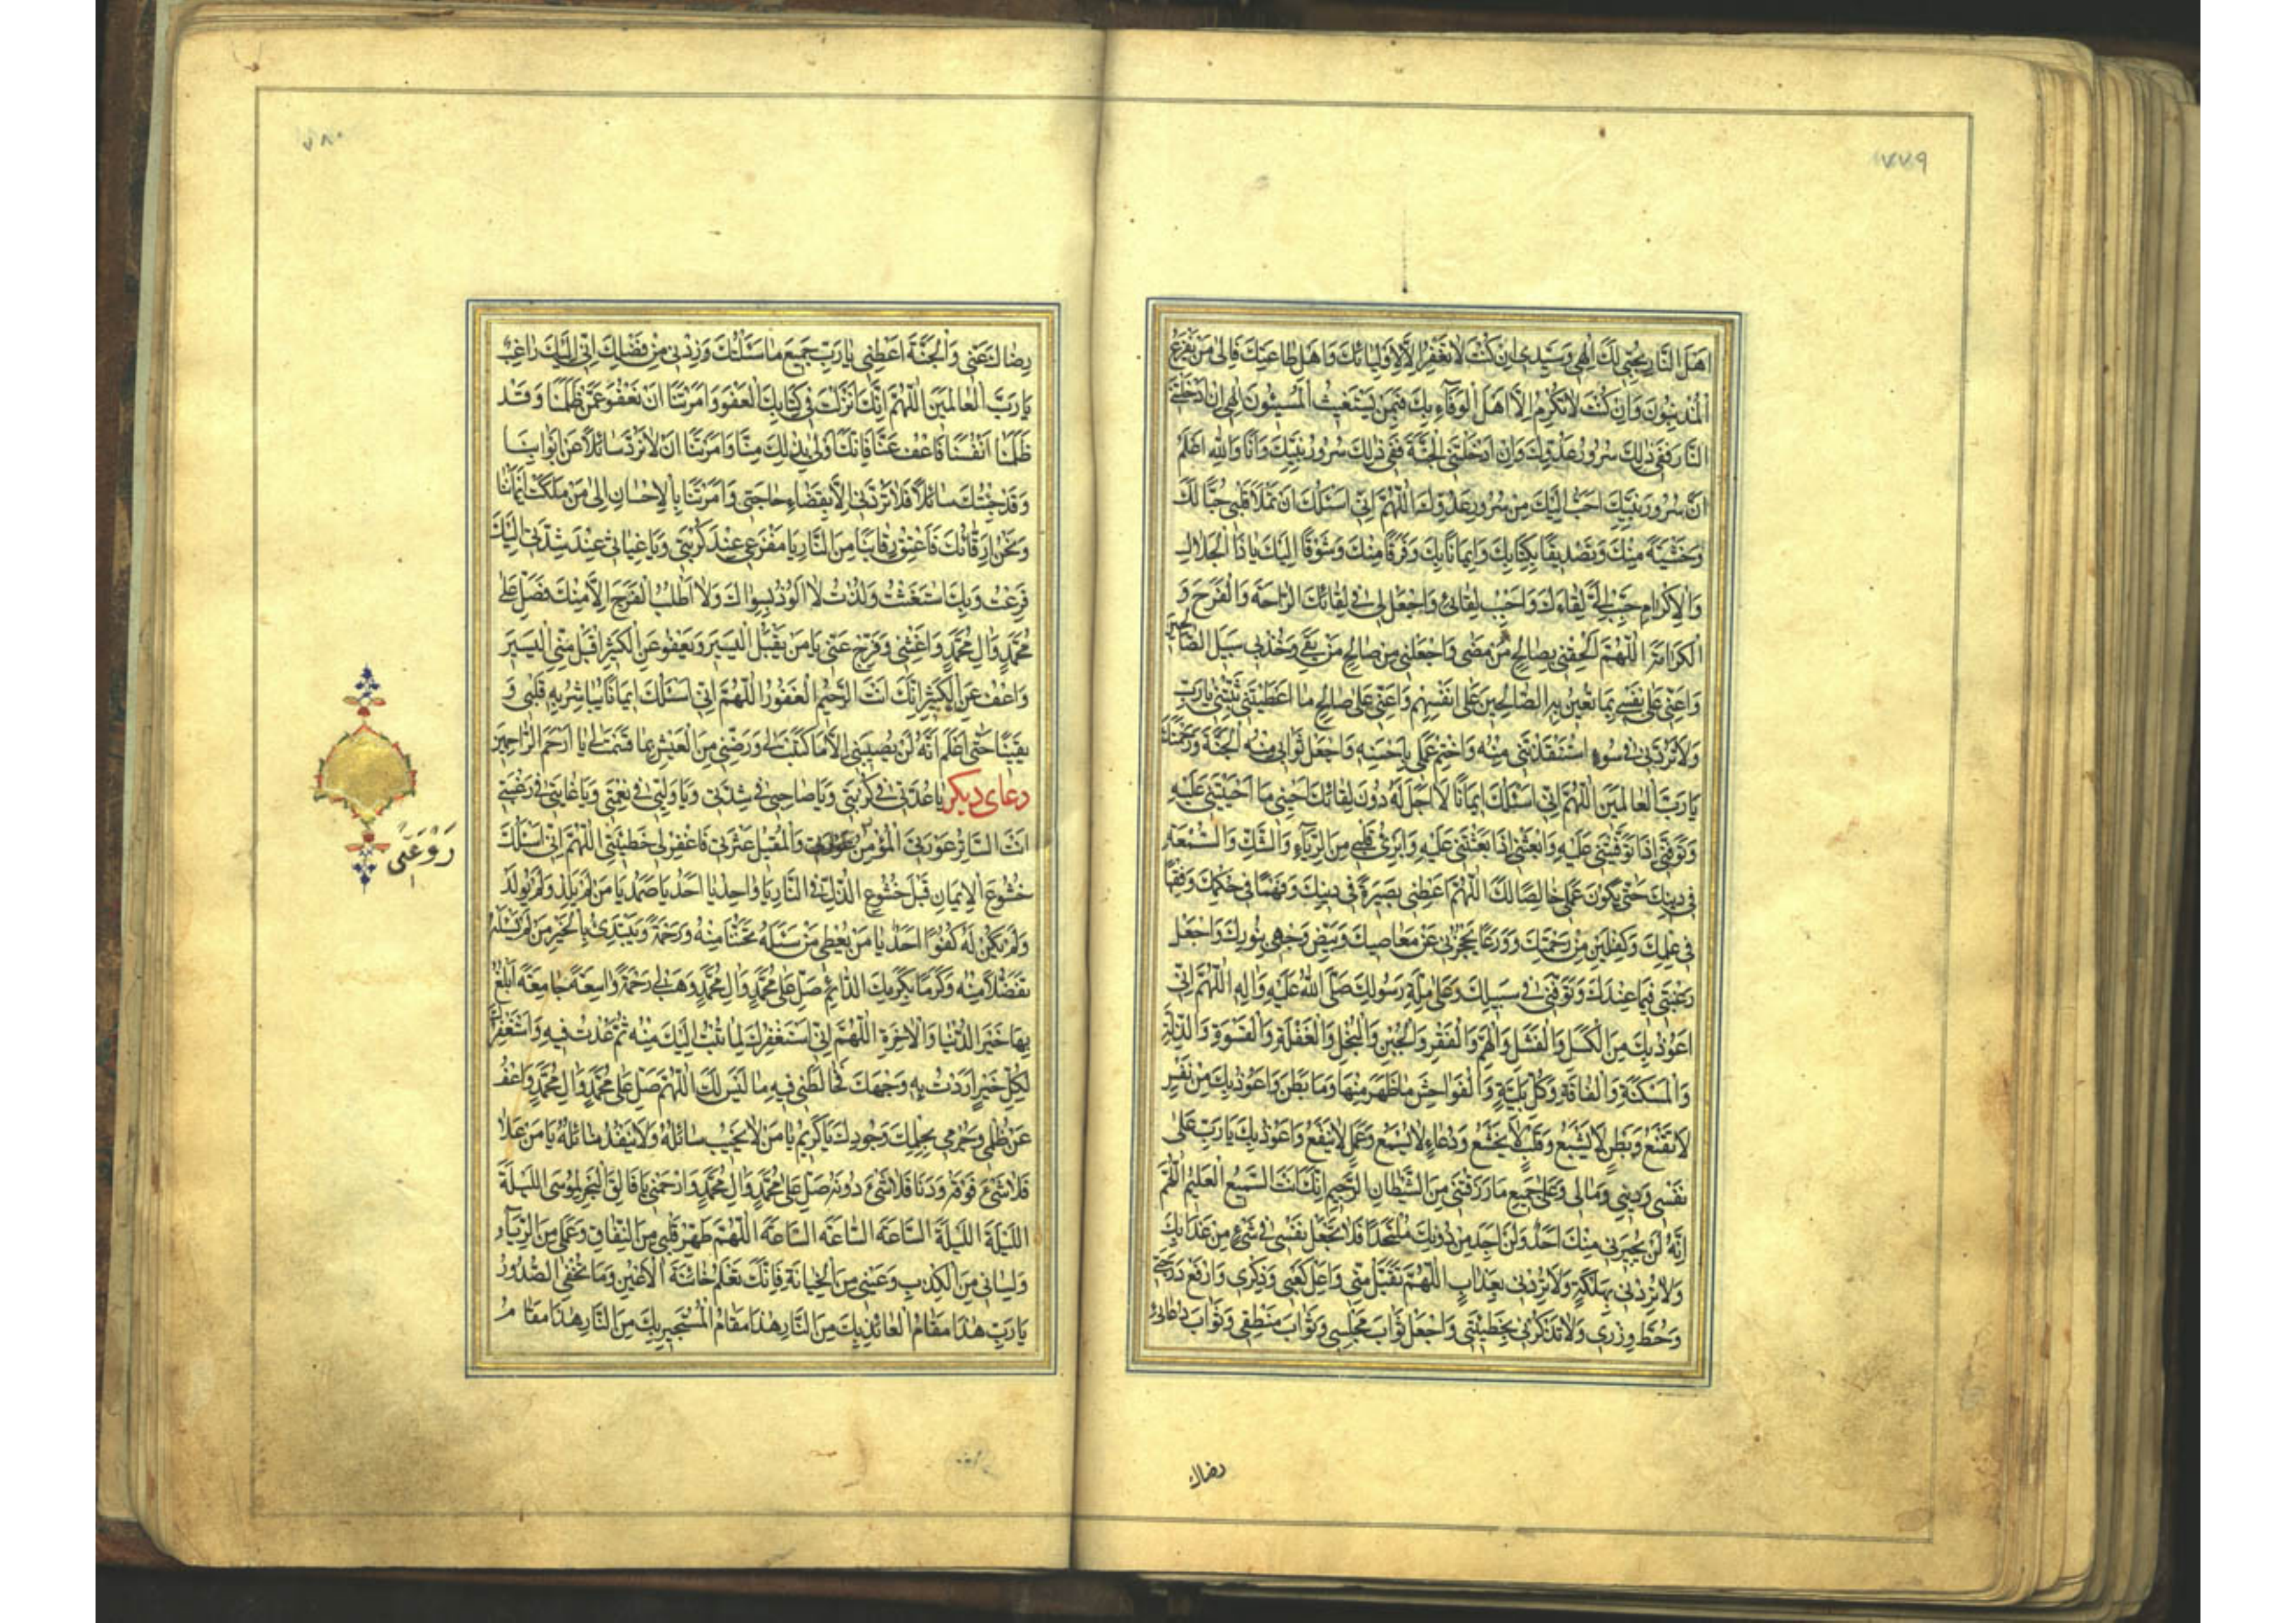 ٧٧٩
اَهْلَ النَّارِ بِحُبّي لَكَ اِلهي وَسَيِّدي اِنْ كُنْتَ لا تَغْفِرُ اِلّا لِاَوْلِيائِكَ وَاَهْلِ طاعَتِكَ فَاِلى مَنْ يَفْزَعُ
الْمُذْنِبُونَ وَاِنْ كُنْتَ لا تُكْرِمُ اِلّا اَهْلَ الْوَفآءِ بِكَ فَبِمَنْ يَسْتَغيثُ الْمُسيئُونَ اِلهي اِنْ اَدْخَلْتَنِي
النَّارَ فَفي ذلِكَ سُرُورُ عَدُوِّكَ وَاِنْ اَدْخَلْتَنِي الْجَنَّةَ فَفي ذلِكَ سُرُورُ نَبِيِّكَ وَاَنَا وَاللهِ اَعْلَمُ
اَنَّ سُرُورَ نَبِيِّكَ اَحَبُّ اِلَيْكَ مِنْ سُرُورِ عَدُوِّكَ اَللّهُمَّ اِنّي اَسْئَلُكَ اَنْ تَمْلَأَ قَلْبي حُبّاً لَكَ
وَخَشْيَةً مِنْكَ وَتَصْديقاً بِكِتابِكَ وَايماناً بِكَ وَفَرَقاً مِنْكَ وَشَوْقاً اِلَيْكَ يا ذَا الْجَلالِ
وَالْاِكْرامِ حَبِّبْ اِلَيَّ لِقآءَكَ وَاَحْبِبْ لِقائي وَاجْعَلْ لي في لِقائِكَ الرَّاحَةَ وَالْفَرَجَ وَ
الْكَرامَةَ اَللّهُمَّ اَلْحِقْني بِصالِحِ مَنْ مَضى وَاجْعَلْني مِنْ صالِحِ مَنْ بَقِيَ وَخُذْ بي سَبيلَ الصَّالِحينَ
وَاَعِنّي عَلى نَفْسي بِما تُعينُ بِهِ الصَّالِحينَ عَلى اَنْفُسِهِمْ وَاَعِنّي عَلى صالِحِ ما اَعْطَيْتَني ثَبِّتْني يا رَبِّ
وَلا تَرُدَّني في سُوءٍ اسْتَنْقَذْتَني مِنْهُ وَاخْتِمْ عَمَلي بِاَحْسَنِهِ وَاجْعَلْ ثَوابي مِنْهُ الْجَنَّةَ وَرَحْمَتَكَ
يا رَبَّ الْعالَمينَ اَللّهُمَّ اِنّي اَسْئَلُكَ ايماناً لا اَجَلَ لَهُ دُونَ لِقائِكَ اَحْيِني ما اَحْيَيْتَني عَلَيْهِ
وَتَوَفَّني اِذا تَوَفَّيْتَني عَلَيْهِ وَابْعَثْني اِذا بَعَثْتَني عَلَيْهِ وَاَبْرِئْ قَلْبي مِنَ الرِّيآءِ وَالشَّكِّ وَالسُّمْعَةِ
في دينِكَ حَتّى يَكُونَ عَمَلي خالِصاً لَكَ اَللّهُمَّ اَعْطِني بَصيرَةً في دينِكَ وَفَهْماً في حُكْمِكَ وَفِقْهاً
في عِلْمِكَ وَكِفْلَيْنِ مِنْ رَحْمَتِكَ وَوَرَعاً يَحْجُزُني عَنْ مَعاصيكَ وَبَيِّضْ وَجْهي بِنُورِكَ وَاجْعَلْ
رَغْبَتي فيما عِنْدَكَ وَتَوَفَّني في سَبيلِكَ وَعَلى مِلَّةِ رَسُولِكَ صَلَّى اللهُ عَلَيْهِ وَالِهِ اَللّهُمَّ اِنّي
اَعُوذُ بِكَ مِنَ الْكَسَلِ وَالْفَشَلِ وَالْهَمِّ وَالْفَقْرِ وَالْجُبْنِ وَالْبُخْلِ وَالْغَفْلَةِ وَالْقَسْوَةِ وَالذِّلَّةِ
وَالْمَسْكَنَةِ وَالْفاقَةِ وَكُلِّ بَلِيَّةٍ وَالْفَواحِشِ ما ظَهَرَ مِنْها وَما بَطَنَ وَاَعُوذُ بِكَ مِنْ نَفْسٍ
لا تَقْنَعُ وَبَطْنٍ لا يَشْبَعُ وَقَلْبٍ لا يَخْشَعُ وَدُعآءٍ لا يُسْمَعُ وَعَمَلٍ لا يَنْفَعُ وَاَعُوذُ بِكَ يا رَبِّ عَلى
نَفْسي وَديني وَمالي وَعَلى جَميعِ ما رَزَقْتَني مِنَ الشَّيْطانِ الرَّجيمِ اِنَّكَ اَنْتَ السَّميعُ الْعَليمُ اَللّهُمَّ
اِنَّهُ لَنْ يُجيرَني مِنْكَ اَحَدٌ وَلَنْ اَجِدَ مِنْ دُونِكَ مُلْتَحَداً فَلا تَجْعَلْ نَفْسي في شَيْءٍ مِنْ عَذابِكَ
وَلا تُرِدْني بِهَلَكَةٍ وَلا تُرِدْني بِعَذابٍ اَللّهُمَّ تَقَبَّلْ مِنّي وَاَعْلِ كَعْبي وَذِكْري وَارْفَعْ دَرَجَتي
وَحُطَّ وِزْري وَلا تَذْكُرْني بِخَطيئَتي وَاجْعَلْ ثَوابَ مَجْلِسي وَثَوابَ مَنْطِقي وَثَوابَ دُعائي
رضاك
٧٨٠
رِضاكَ عَنّي وَالْجَنَّةَ اَعْطِني يا رَبِّ جَميعَ ما سَئَلْتُكَ وَزِدْني مِنْ فَضْلِكَ اِنّي اِلَيْكَ راغِبٌ
يا رَبَّ الْعالَمينَ اَللّهُمَّ اِنَّكَ اَنْزَلْتَ في كِتابِكَ الْعَفْوَ وَاَمَرْتَنا اَنْ نَعْفُوَ عَمَّنْ ظَلَمَنا وَقَدْ
ظَلَمْنا اَنْفُسَنا فَاعْفُ عَنَّا فَاِنَّكَ اَوْلى بِذلِكَ مِنَّا وَاَمَرْتَنا اَنْ لا نَرُدَّ سائِلاً عَنْ اَبْوابِنا
وَقَدْ جِئْتُكَ سائِلاً فَلا تَرُدَّني اِلّا بِقَضآءِ حاجَتي وَاَمَرْتَنا بِالْاِحْسانِ اِلى مَنْ مَلَكَتْ اَيْمانُنا
وَنَحْنُ اَرِقّائُكَ فَاَعْتِقْ رِقابَنا مِنَ النَّارِ يا مَفْزَعي عِنْدَ كُرْبَتي وَيا غِياثي عِنْدَ شِدَّتي اِلَيْكَ
فَزِعْتُ وَبِكَ اسْتَغَثْتُ وَلُذْتُ لا اَلُوذُ بِسِواكَ وَلا اَطْلُبُ الْفَرَجَ اِلّا مِنْكَ فَصَلِّ عَلى
مُحَمَّدٍ وَالِ مُحَمَّدٍ وَاَغِثْني وَفَرِّجْ عَنّي يا مَنْ يَقْبَلُ الْيَسيرَ وَيَعْفُو عَنِ الْكَثيرِ اقْبَلْ مِنِّي الْيَسيرَ
وَاعْفُ عَنِ الْكَثيرِ اِنَّكَ اَنْتَ الرَّحيمُ الْغَفُورُ اَللّهُمَّ اِنّي اَسْئَلُكَ ايماناً تُباشِرُ بِهِ قَلْبي وَ
يَقيناً حَتّى اَعْلَمَ اَنَّهُ لَنْ يُصيبَني اِلّا ما كَتَبْتَ لي وَرَضِّني مِنَ الْعَيْشِ بِما قَسَمْتَ لي يا اَرْحَمَ الرَّاحِمينَ
دعاى ديكر يا عُدَّتي في كُرْبَتي وَيا صاحِبي في شِدَّتي وَيا وَلِيّي في نِعْمَتي وَيا غايَتي في رَغْبَتي
اَنْتَ السَّاتِرُ عَوْرَتي الْمُؤْمِنُ وَالْمُقيلُ عَثْرَتي فَاغْفِرْ لي خَطيئَتي اَللّهُمَّ اِنّي اَسْئَلُكَ
رَوْعَتى
خُشُوعَ الْايمانِ قَبْلَ خُشُوعِ الذُّلِّ فِي النَّارِ يا واحِدُ يا اَحَدُ يا صَمَدُ يا مَنْ لَمْ يَلِدْ وَلَمْ يُولَدْ
وَلَمْ يَكُنْ لَهُ كُفُوًا اَحَدٌ يا مَنْ يُعْطي مَنْ سَئَلَهُ تَحَنُّناً مِنْهُ وَرَحْمَةً وَيَبْتَدِئُ بِالْخَيْرِ مَنْ لَمْ يَسْئَلْهُ
تَفَضُّلاً مِنْهُ وَكَرَماً بِكَرَمِكَ الدَّائِمِ صَلِّ عَلى مُحَمَّدٍ وَالِ مُحَمَّدٍ وَهَبْ لي رَحْمَةً واسِعَةً جامِعَةً اَبْلُغُ
بِها خَيْرَ الدُّنْيا وَالْاخِرَةِ اَللّهُمَّ اِنّي اَسْتَغْفِرُكَ لِما تُبْتُ اِلَيْكَ مِنْهُ ثُمَّ عُدْتُ فيهِ وَاَسْتَغْفِرُكَ
لِكُلِّ خَيْرٍ اَرَدْتُ بِهِ وَجْهَكَ فَخالَطَني فيهِ ما لَيْسَ لَكَ اَللّهُمَّ صَلِّ عَلى مُحَمَّدٍ وَالِ مُحَمَّدٍ وَاعْفُ
عَنْ ظُلْمي وَجُرْمي بِحِلْمِكَ وَجُودِكَ يا كَريمُ يا مَنْ لا يَخيبُ سائِلُهُ وَلا يَنْفَدُ نائِلُهُ يا مَنْ عَلا
فَلا شَيْءَ فَوْقَهُ وَدَنا فَلا شَيْءَ دُونَهُ صَلِّ عَلى مُحَمَّدٍ وَالِ مُحَمَّدٍ وَارْحَمْني يا فالِقَ الْبَحْرِ لِمُوسَى اللَّيْلَةَ
اللَّيْلَةَ اللَّيْلَةَ السَّاعَةَ السَّاعَةَ السَّاعَةَ اَللّهُمَّ طَهِّرْ قَلْبي مِنَ النِّفاقِ وَعَمَلي مِنَ الرِّيآءِ
وَلِساني مِنَ الْكِذْبِ وَعَيْني مِنَ الْخِيانَةِ فَاِنَّكَ تَعْلَمُ خائِنَةَ الْاَعْيُنِ وَما تُخْفِي الصُّدُورُ
يا رَبِّ هذا مَقامُ الْعائِذِ بِكَ مِنَ النَّارِ هذا مَقامُ الْمُسْتَجيرِ بِكَ مِنَ النَّارِ هذا مَقامُ